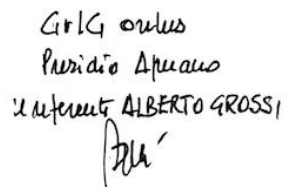 GrIG onlus
Presidio Apuano
il referente ALBERTO GROSSI